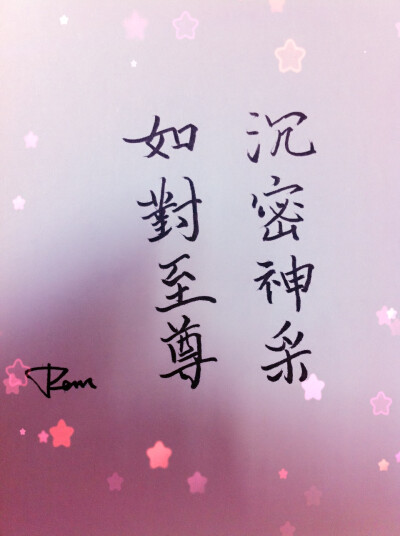 沉密神采
如對至尊
Rom